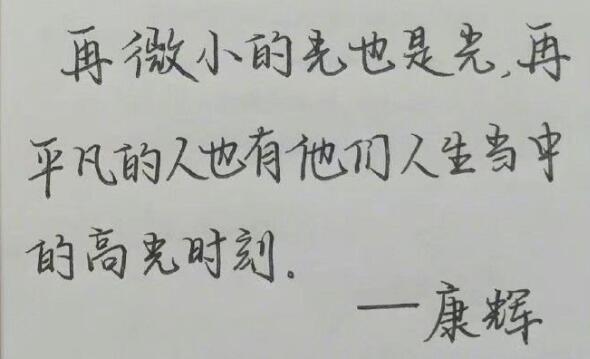 再微小的光也是光,再
平凡的人也有他们人生当中
的高光时刻.
—康辉